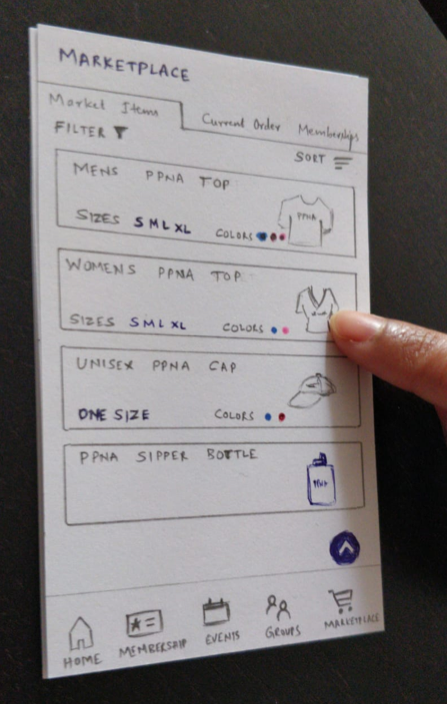 MARKETPLACE
Market Items Current Order Memberships
FILTER
SORT
MENS PPNA TOP
PPNA
SIZES S M L XL COLORS
WOMENS PPNA TOP
SIZES S M L XL COLORS
UNISEX PPNA CAP
ONE SIZE COLORS
PPNA SIPPER BOTTLE
HOME MEMBERSHIP EVENTS GROUPS MARKETPLACE